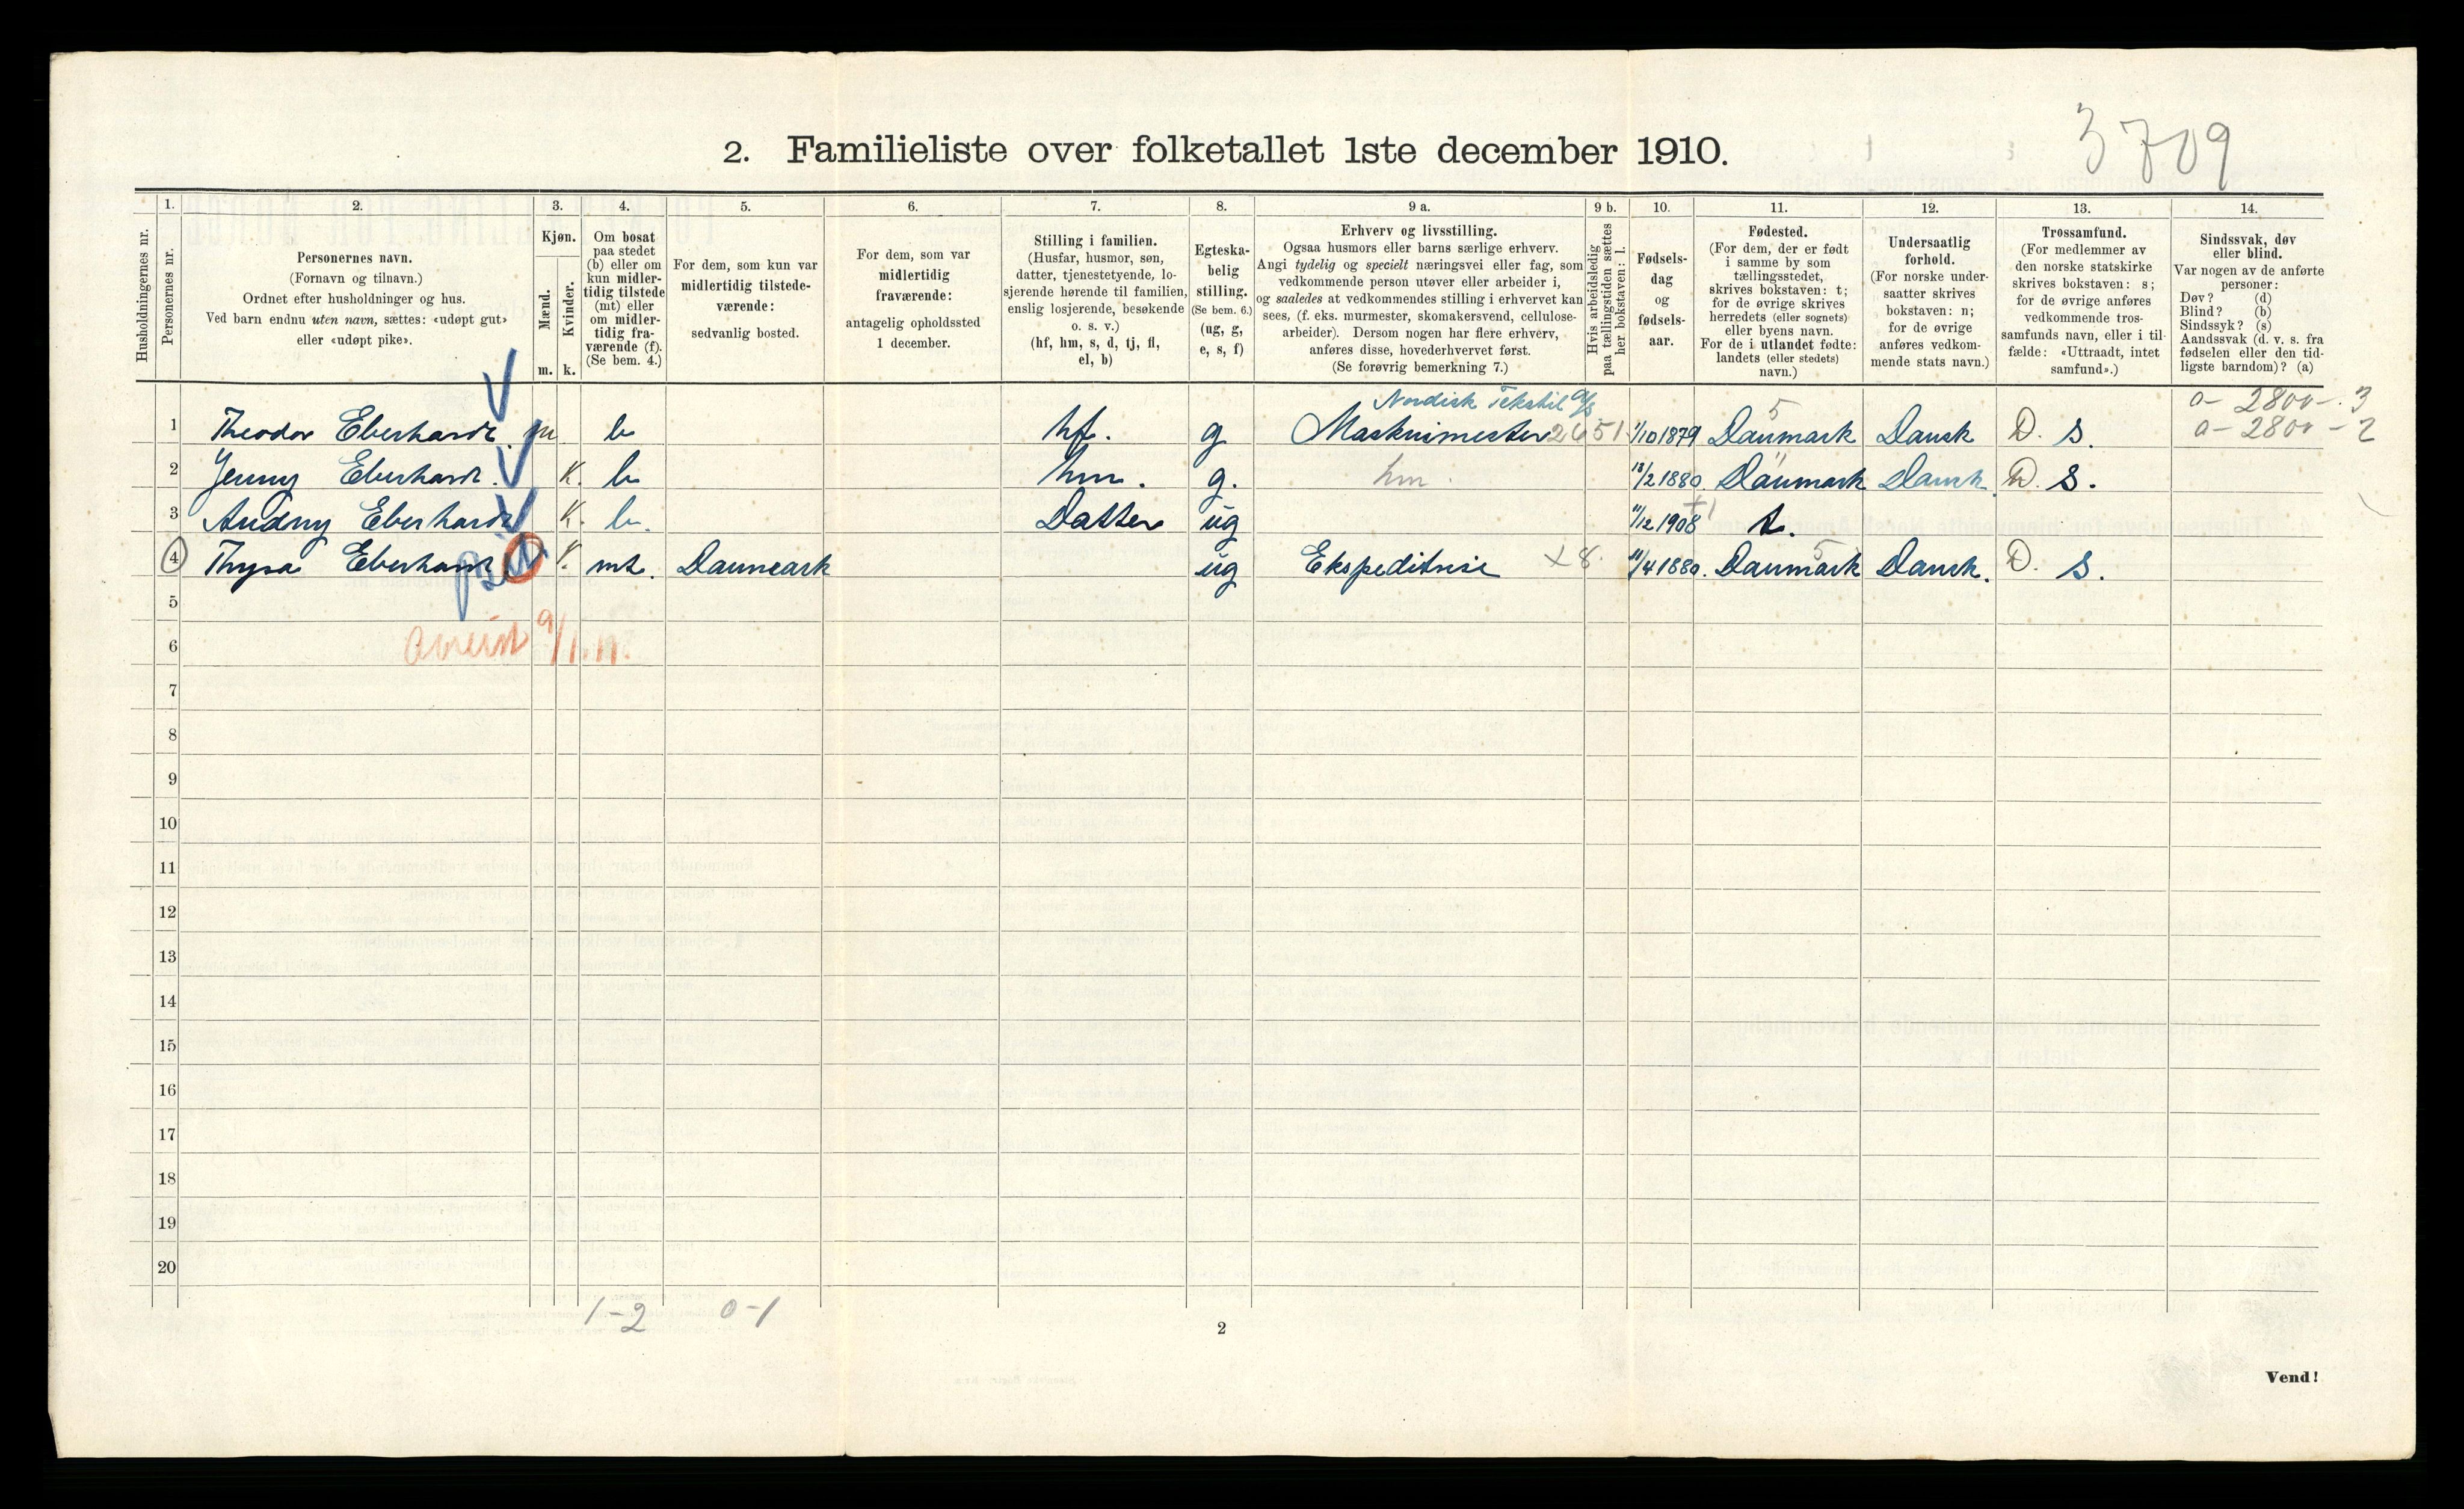 3709
2. Familieliste over folketallet 1ste december 1910.
Husholdningernes nr.
1. Personernes nr.
2. Personernes navn.
(Fornavn og tilnavn.)
Ordnet efter husholdninger og hus.
Ved barn endnu uten navn, sættes: «udøpt gut»
eller «udøpt pike».
3. Kjøn.
Mænd. Kvinder.
m. k.
4. Om bosat
paa stedet
(b) eller om
kun midler-
tidig tilstede
(mt) eller
om midler-
tidig fra-
værende (f).
(Se bem. 4.)
5. For dem, som kun var
midlertidig tilstede-
værende:
sedvanlig bosted.
6. For dem, som var
midlertidig
fraværende:
antagelig opholdssted
1 december.
7. Stilling i familien.
(Husfar, husmor, søn,
datter, tjenestetyende, lo-
sjerende hørende til familien,
enslig losjerende, besøkende
o. s. v.)
(hf, hm, s, d, tj, fl,
el, b)
8. Egteska-
belig
stilling.
(Se bem. 6.)
(ug, g,
e, s, f)
9 a. Erhverv og livsstilling.
Ogsaa husmors eller barns særlige erhverv.
Angi tydelig og specielt næringsvei eller fag, som
vedkommende person utøver eller arbeider i,
og saaledes at vedkommendes stilling i erhvervet kan
sees, (f. eks. murmester, skomakersvend, cellulose-
arbeider). Dersom nogen har flere erhverv,
anføres disse, hovederhvervet først.
(Se forøvrig bemerkning 7.)
9 b. Hvis arbeidsledig
paa tællingstiden sættes
her bokstaven: l.
10. Fødsels-
dag
og
fødsels-
aar.
11. Fødested.
(For dem, der er født
i samme by som
tællingsstedet,
skrives bokstaven: t;
for de øvrige skrives
herredets (eller sognets)
eller byens navn.
For de i utlandet fødte:
landets (eller stedets)
navn.)
12. Undersaatlig
forhold.
(For norske under-
saatter skrives
bokstaven: n;
for de øvrige
anføres vedkom-
mende stats navn.)
13. Trossamfund.
(For medlemmer av
den norske statskirke
skrives bokstaven: s;
for de øvrige anføres
vedkommende tros-
samfunds navn, eller i til-
fælde: «Uttraadt, intet
samfund».)
14. Sindssvak, døv
eller blind.
Var nogen av de anførte
personer:
Døv? (d)
Blind? (b)
Sindssyk? (s)
Aandssvak (d. v. s. fra
fødselen eller den tid-
ligste barndom)? (a)
Nordisk Tekstil A/S 5 a- 2800-. 3
1 Theodor Eberhardt. m b hf. g Maskinmester 2651. 1/10 1879 Danmark Dansk D. s. a- 2800 - 2
2 Jenny Eberhardt. K. b hm. g. hm. 18/2 1880. Danmark Dansk. D. s.
3 Audny Eberhardt K. b. Datter ug 11/12 1908 +1 t.
4 Thyra Eberhardt K. mt. Danmark ug Ekspeditrise x8. 11/4 1880. Danmark 5 Dansk. D. s.
5
avreist 9/1. 11.
6
7
8
9
10
11
12
13
14
15
16
17
18
19
20
1-2 0-1
2
Vend!